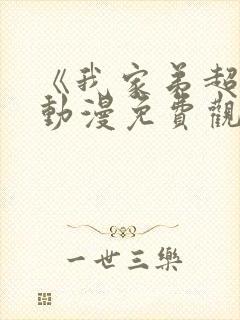 《我家弟超
動漫免費觀
一世三樂